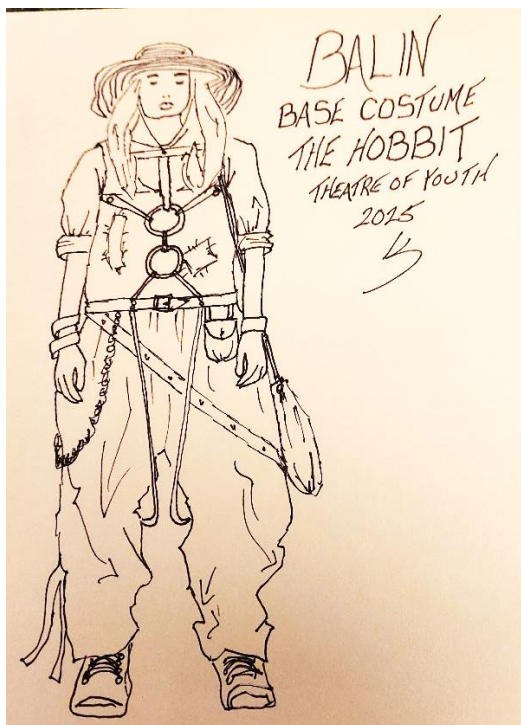 BALIN
BASE COSTUME
THE HOBBIT
THEATRE OF YOUTH
2025